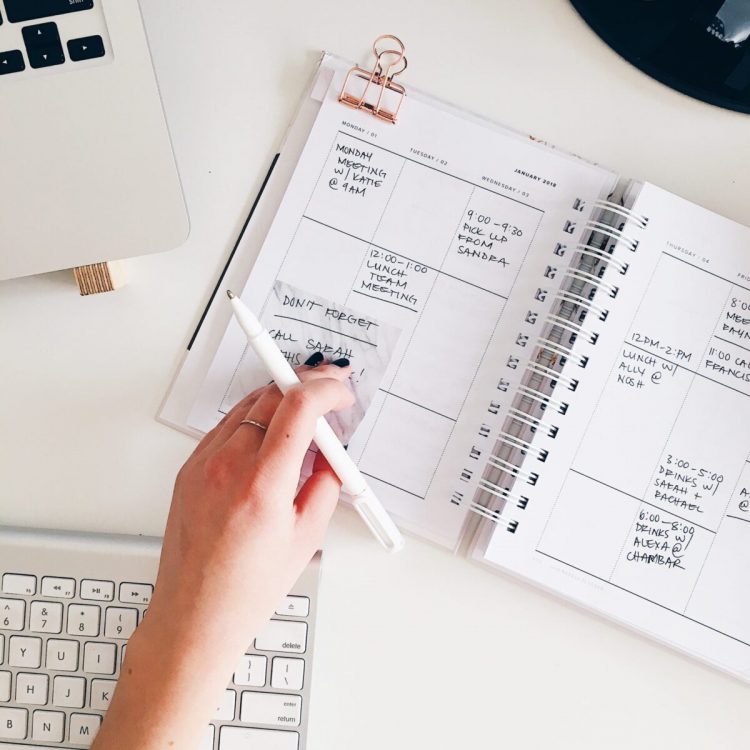 MONDAY / 01
TUESDAY / 02
WEDNESDAY / 03
JANUARY 2018
MONDAY
MEETING
W/ KATIE
@ 9AM
12:00-1:00
LUNCH
TEAM
MEETING
9:00-9:30
PICK UP
FROM
SANDRA
DON'T FORGET
CALL SARAH
THIS
THURSDAY / 04
12PM-2PM
LUNCH W/
ALLY @
NOSH
3:00-5:00
DRINKS W/
SARAH +
RACHAEL
6:00-8:00
DRINKS W/
ALEXA @
CHAMBAR
8:0
MEE
11:00 CAL
FRANCIS
A
@
6
7
8
9
&
*
(
Y
U
I
H
J
K
B
N
M
delete
return